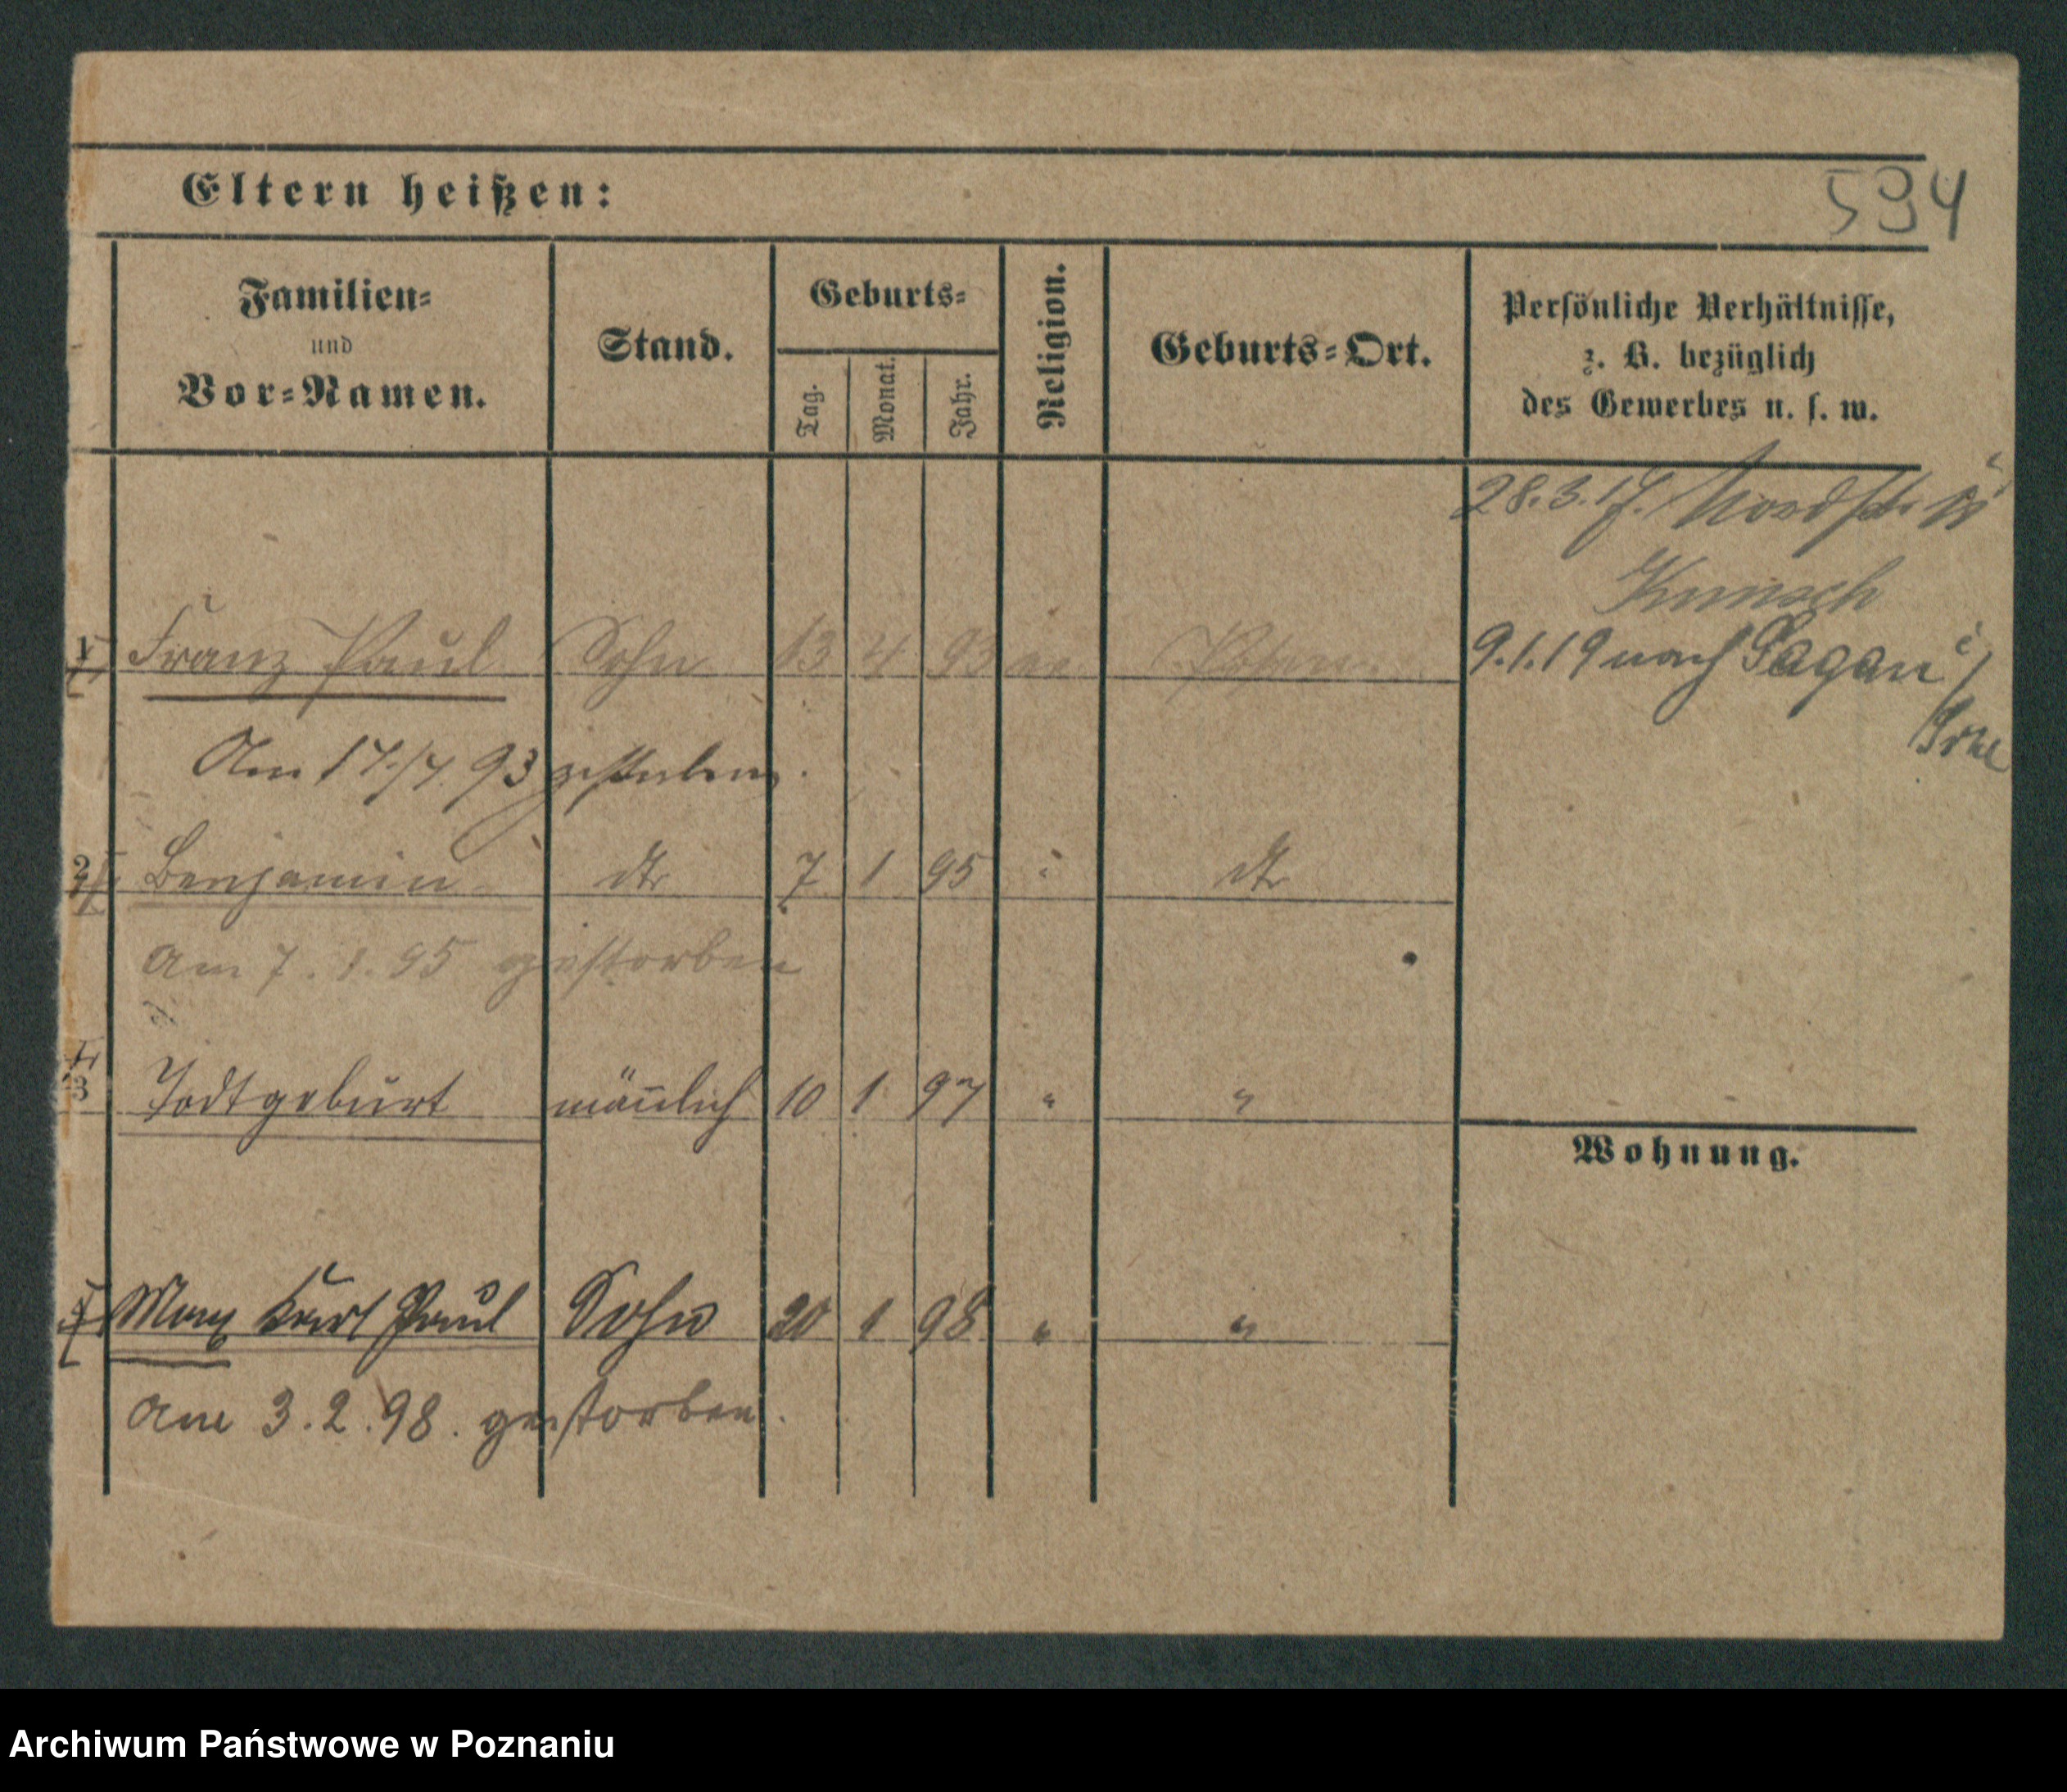 Eltern heißen:
594
Familien=
und
Vor=Namen.
Stand.
Geburts=
Tag.
Monat.
Jahr.
Religion.
Geburts=Ort.
Persönliche Verhältnisse,
z. B. bezüglich
des Gewerbes u. s. w.
28.3.17. Nordstr.
9.1.19 nach Sagan
1 Franz Paul Sohn 13 4 93 ev Posen
Am 17/7. 93 gestorben.
2 Benjamin dto 7 1 95 " dto
Am 7. 1. 95 gestorben
3 Todtgeburt männlich 10 1 97 " "
Wohnung.
4 Max Karl Paul Sohn 20 1 98 " "
Am 3.2.98. gestorben.
Archiwum Państwowe w Poznaniu